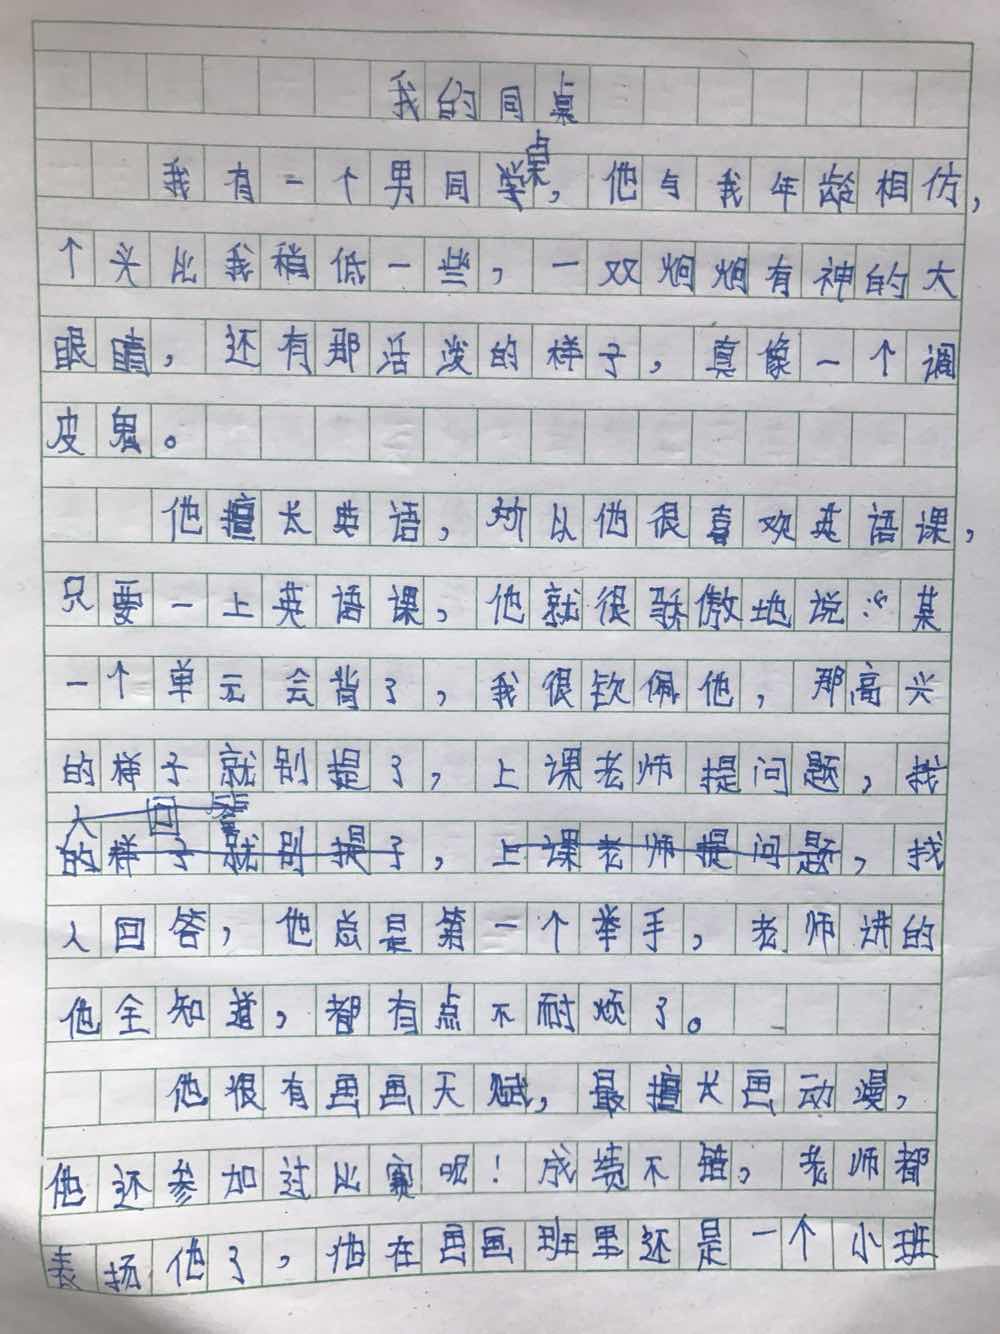 我的同桌
我有一个男同桌，他与我年龄相仿，
个头比我稍低一些，一双炯炯有神的大
眼睛，还有那活泼的样子，真像一个调
皮鬼。
他擅长英语，所以他很喜欢英语课，
只要一上英语课，他就很骄傲地说：“某
一个单元会背了，我很钦佩他，那高兴
的样子就别提了，上课老师提问题，找
人回答
的样子就别提了，上课老师提问题，找
人回答，他总是第一个举手，老师讲的
他全知道，都有点不耐烦了。
他很有画画天赋，最擅长画动漫，
他还参加过比赛呢！成绩不错，老师都
表扬他了，他在画画班里还是一个小班